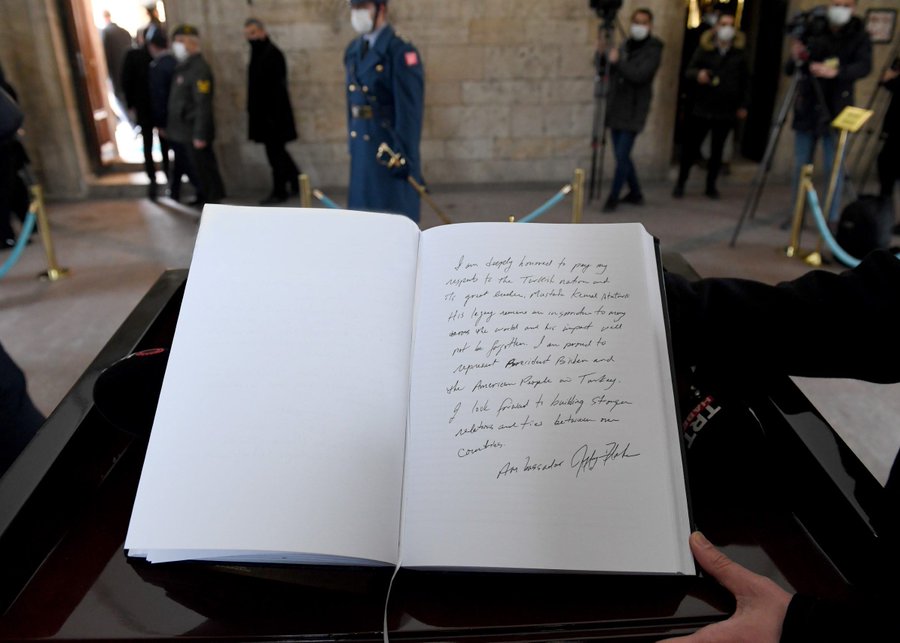 I am deeply honored to pay my
respects to the Turkish nation and
its great leader, Mustafa Kemal Ataturk.
His legacy remains an inspiration to many
across the world and his impact will
not be forgotten. I am proud to
represent President Biden and
the American People in Turkey.
I look forward to building stronger
relations and ties between our
countries.
Ambassador Jeffry Flake
TRT
HABER